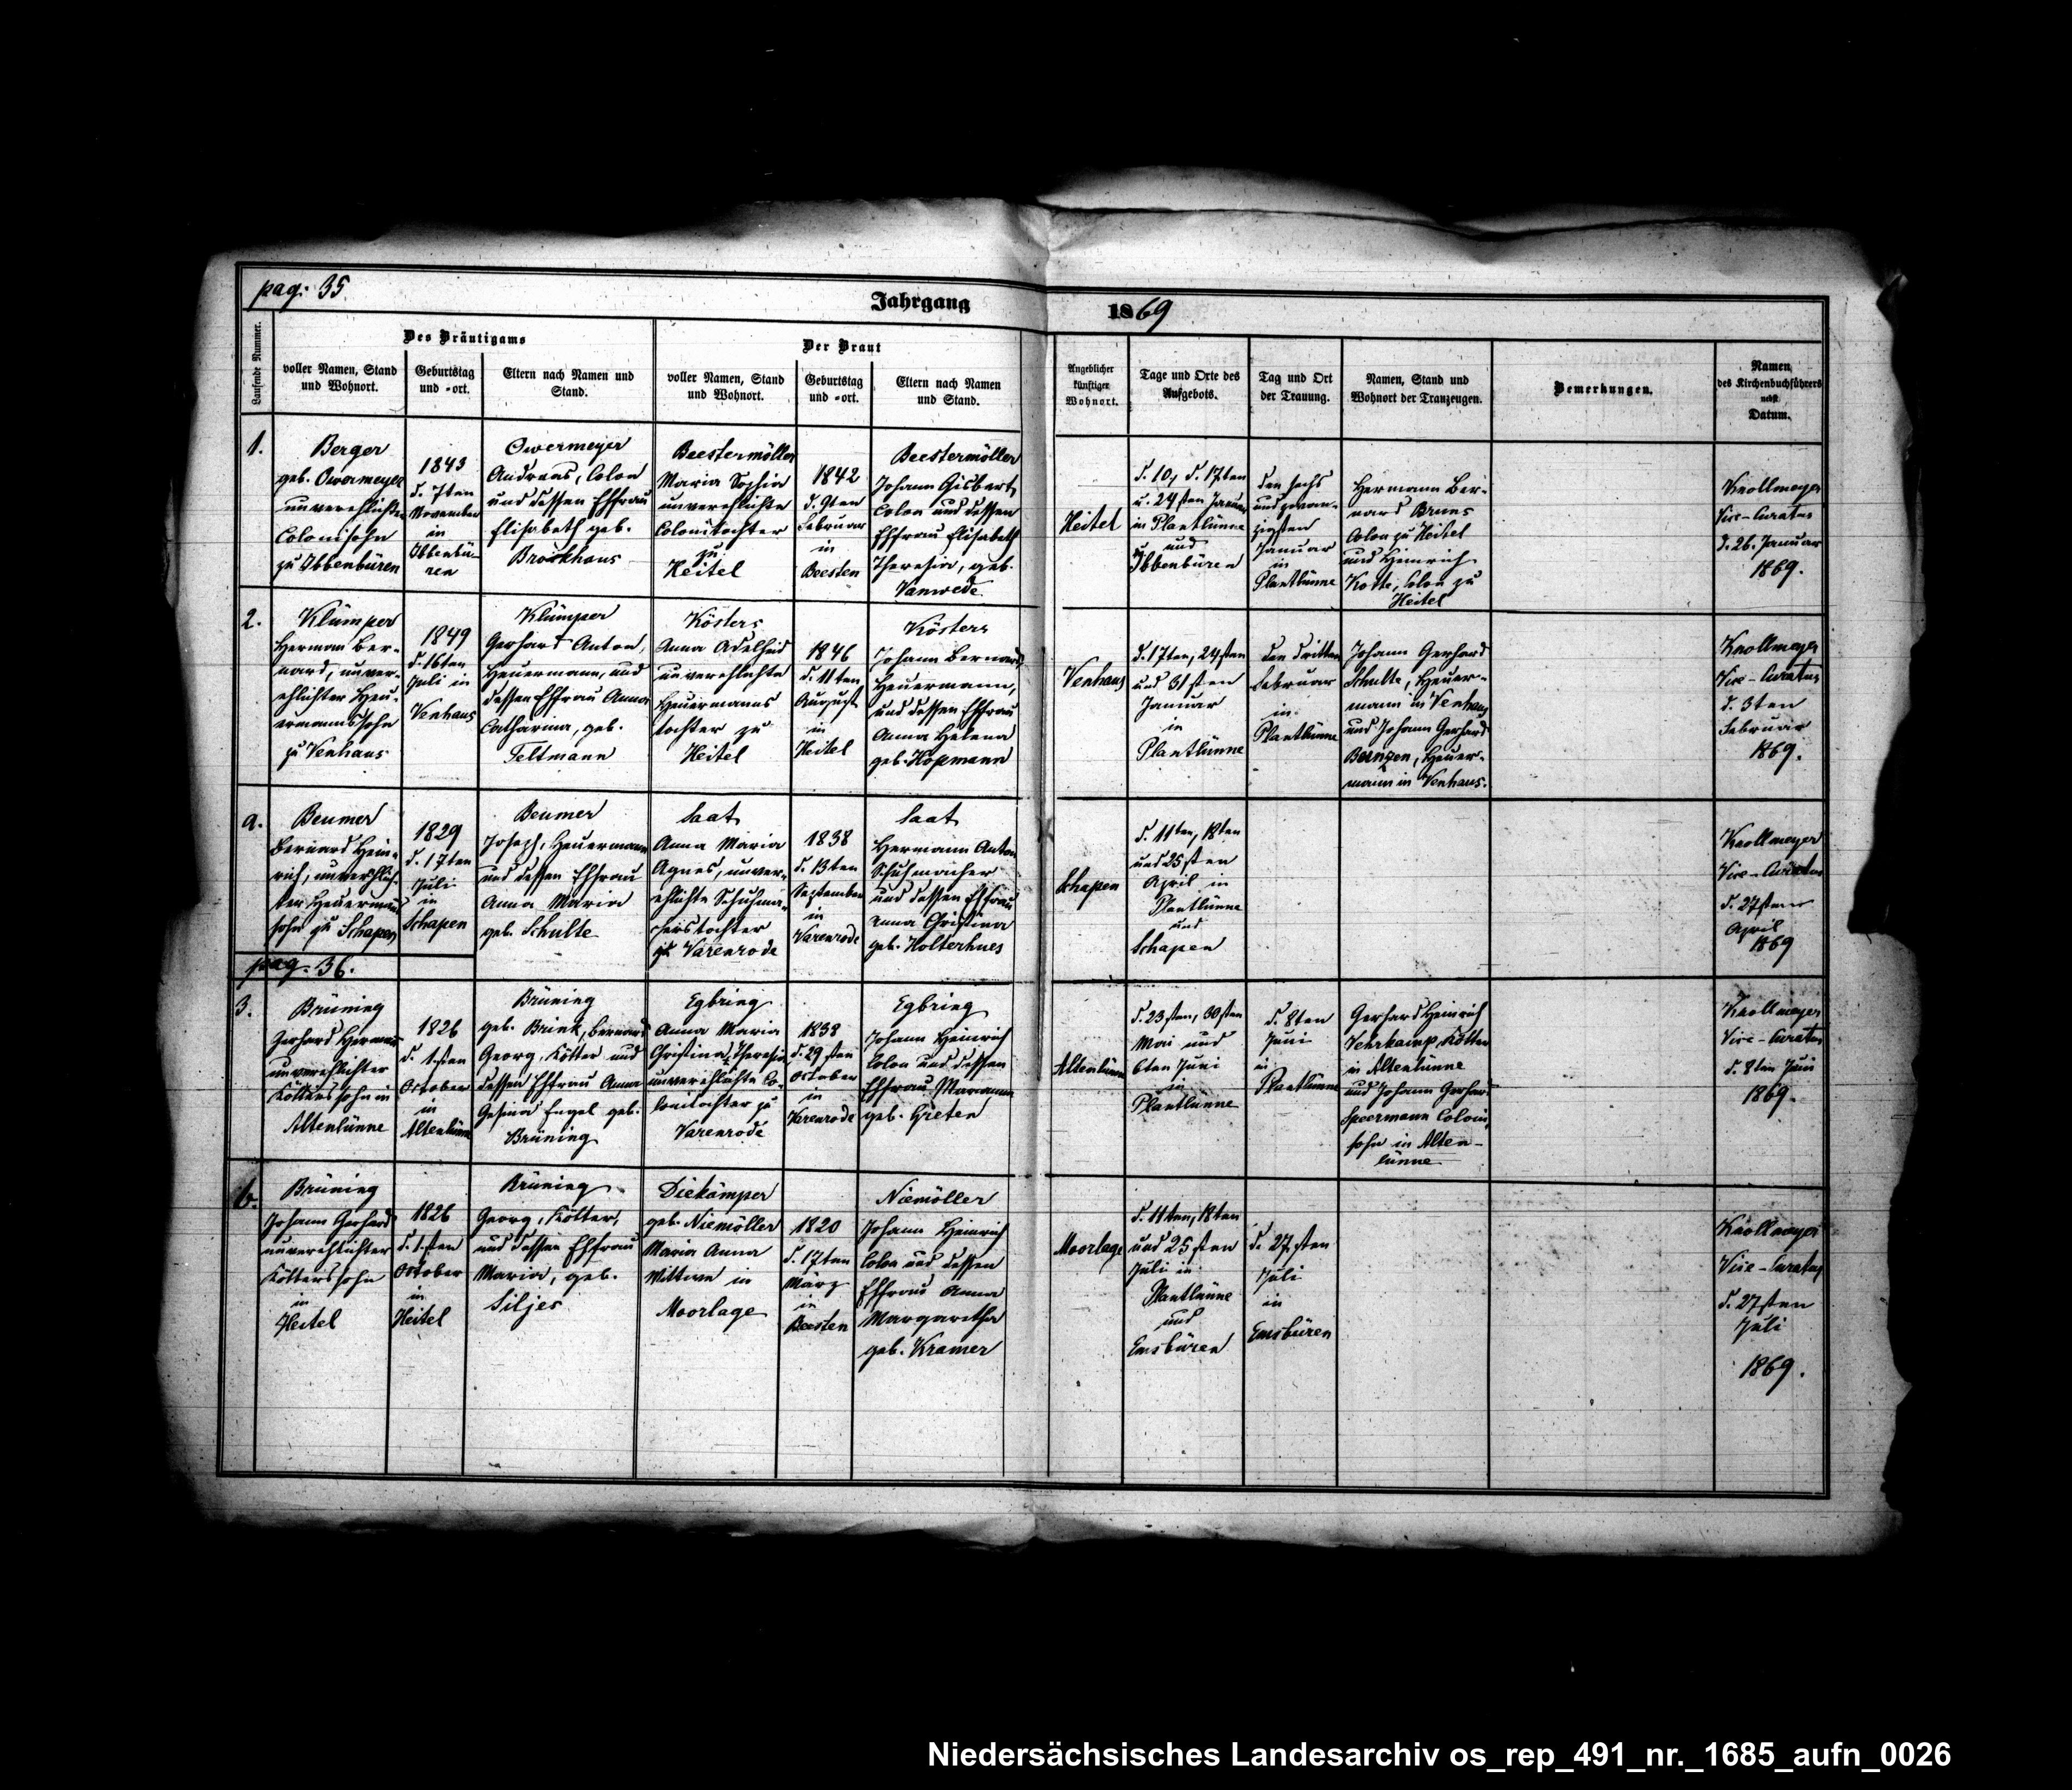 pag: 35.
Jahrgang 1869
Laufende Nummer.
Des Bräutigams
voller Namen, Stand
und Wohnort.
Geburtstag
und =ort.
Eltern nach Namen und
Stand.
Der Braut
voller Namen, Stand
und Wohnort.
Geburtstag
und =ort.
Eltern nach Namen
und Stand.
Angeblicher
künftiger
Wohnort.
Tage und Orte des
Aufgebots.
Tag und Ort
der Trauung.
Namen, Stand und
Wohnort der Trauzeugen.
Bemerkungen.
Namen
des Kirchenbuchführers
nebst
Datum.
1.
Berger
geb. Owermeyer
unverehlichter
Colonisohn
zu Ibbenbüren
1843
d. 7ten
November
in
Ibbenbü-
ren
Owermeyer
Andreas, Colon
und dessen Ehefrau
Elisabeth geb.
Brookhaus
Beestermöller
Maria Sophia
unverehlichte
Colonitochter
zu
Heitel
1842
d. 9ten
Februar
in
Beesten
Beestermöller
Johann Gisbert,
Colon und dessen
Ehefrau Elisabeth
Theresia, geb.
Vanwede
Heitel
d. 10, d. 17ten
u. 24sten Januar
in Plantlünne
und
Ibbenbüren
den sechs
und zwan-
zigsten
Januar
in
Plantlünne
Hermann Ber-
nard Bruns
Colon zu Heitel
und Heinrich
Kotte, Colon zu
Heitel
Knollmeyer
Vice-Curatus
d. 26. Januar
1869.
2.
Klümper
Herman Ber-
nard, unver-
ehlichter Heu-
ermannssohn
zu Venhaus
1849
d. 16ten
Juli in
Venhaus
Klümper
Gerhard Anton,
Heuermann, und
dessen Ehefrau Anna
Catharina, geb.
Feltmann
Kösters
Anna Adelheid
unverehlichte
Heuermanns
tochter zu
Heitel
1846
d. 11ten
August
in
Heitel
Kösters
Johann Bernard
Heuermann,
und dessen Ehefrau
Anna Helena
geb. Kopmann
Venhaus
d. 17ten, 24sten
und 31sten
Januar
in
Plantlünne
den dritten
Februar
in
Plantlünne
Johann Gerhard
Schulte, Heuer-
mann in Venhaus
und Johann Gerhard
Heuer-
mann in Venhaus.
Knollmeyer
Vice-Curatus
d. 3ten
Februar
1869.
a.
Beumer
Bernard Hein-
rich, unverehlich-
ter Heuermanns
sohn zu Schapen
1829
d. 17ten
Juli
in
Schapen
Beumer
Joseph, Heuermann
und dessen Ehefrau
Anna Maria
geb. Schulte
Saat
Anna Maria
Agnes, unver-
ehlichte Schuhma-
cherstochter
zu Varenrode
1838
d. 13ten
September
in
Varenrode
Saat
Hermann Anton
Schuhmacher
und dessen Ehefrau
Anna Christina
geb. Holterhues
Schapen
d. 11ten, 18ten
und 25sten
April in
Plantlünne
und
Schapen
Knollmeyer
Vice-Curatus
d. 27sten
April
1869
pag. 36.
3.
Brüning
Gerhard Herman
unverehlichter
Kötterssohn in
Altenlünne
1826
d. 1.sten
October
in
Altenlünne
Brüning
geb. Brink, Bernard
Georg, Kötter und
dessen Ehefrau Anna
Gesina Engel geb.
Brüning
Egbring
Anna Maria
Christina Theresia
unverehlichte Co-
lonitochter zu
Varenrode
1838
d. 29sten
October
in
Varenrode
Egbring
Johann Heinrich
Colon und dessen
Ehefrau Mariann
geb. Grieten
Altenlünne
d. 23sten, 30sten
Mai und
6ten Juni
in
Plantlünne
d. 8ten
Juni
in
Plantlünne
Gerhard Heinrich
Vehrkamp, Kötter
in Altenlünne
und Johann Gerhard
Speermann Coloni
sohn in Alten-
lünne
Knollmeyer
Vice-Curatus
d. 8ten Juni
1869.
b.
Brüning
Johann Gerhard
unverehlichter
Kötterssohn
in
Heitel
1826
d. 1.sten
October
in
Heitel
Brüning
Georg, Kötter,
und dessen Ehefrau
Maria, geb.
Siljes
Diekämper
geb. Niemöller
Maria Anna
Wittwe in
Moorlage
1820
d. 17ten
März
in
Beesten
Niemöller
Johann Heinrich
Colon und dessen
Ehefrau Anna
Margaretha
geb. Kramer
Moorlage
d. 11ten, 18ten
und 25sten
Juli in
Plantlünne
und
Emsbüren
d. 27sten
Juli
in
Emsbüren
Knollmeyer
Vice-Curatus
d. 27sten
Juli
1869.
Niedersächsisches Landesarchiv os_rep_491_nr._1685_aufn_0026